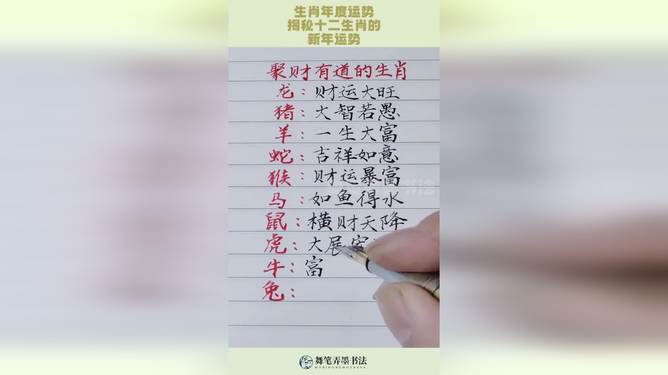 生肖年度运势
揭秘十二生肖的
新年运势
聚财有道的生肖
龙：财运大旺
猪：大智若愚
羊：一生大富
蛇：吉祥如意
猴：财运暴富
马：如鱼得水
鼠：横财天降
虎：大展宏
牛：富
兔：
舞笔弄墨书法